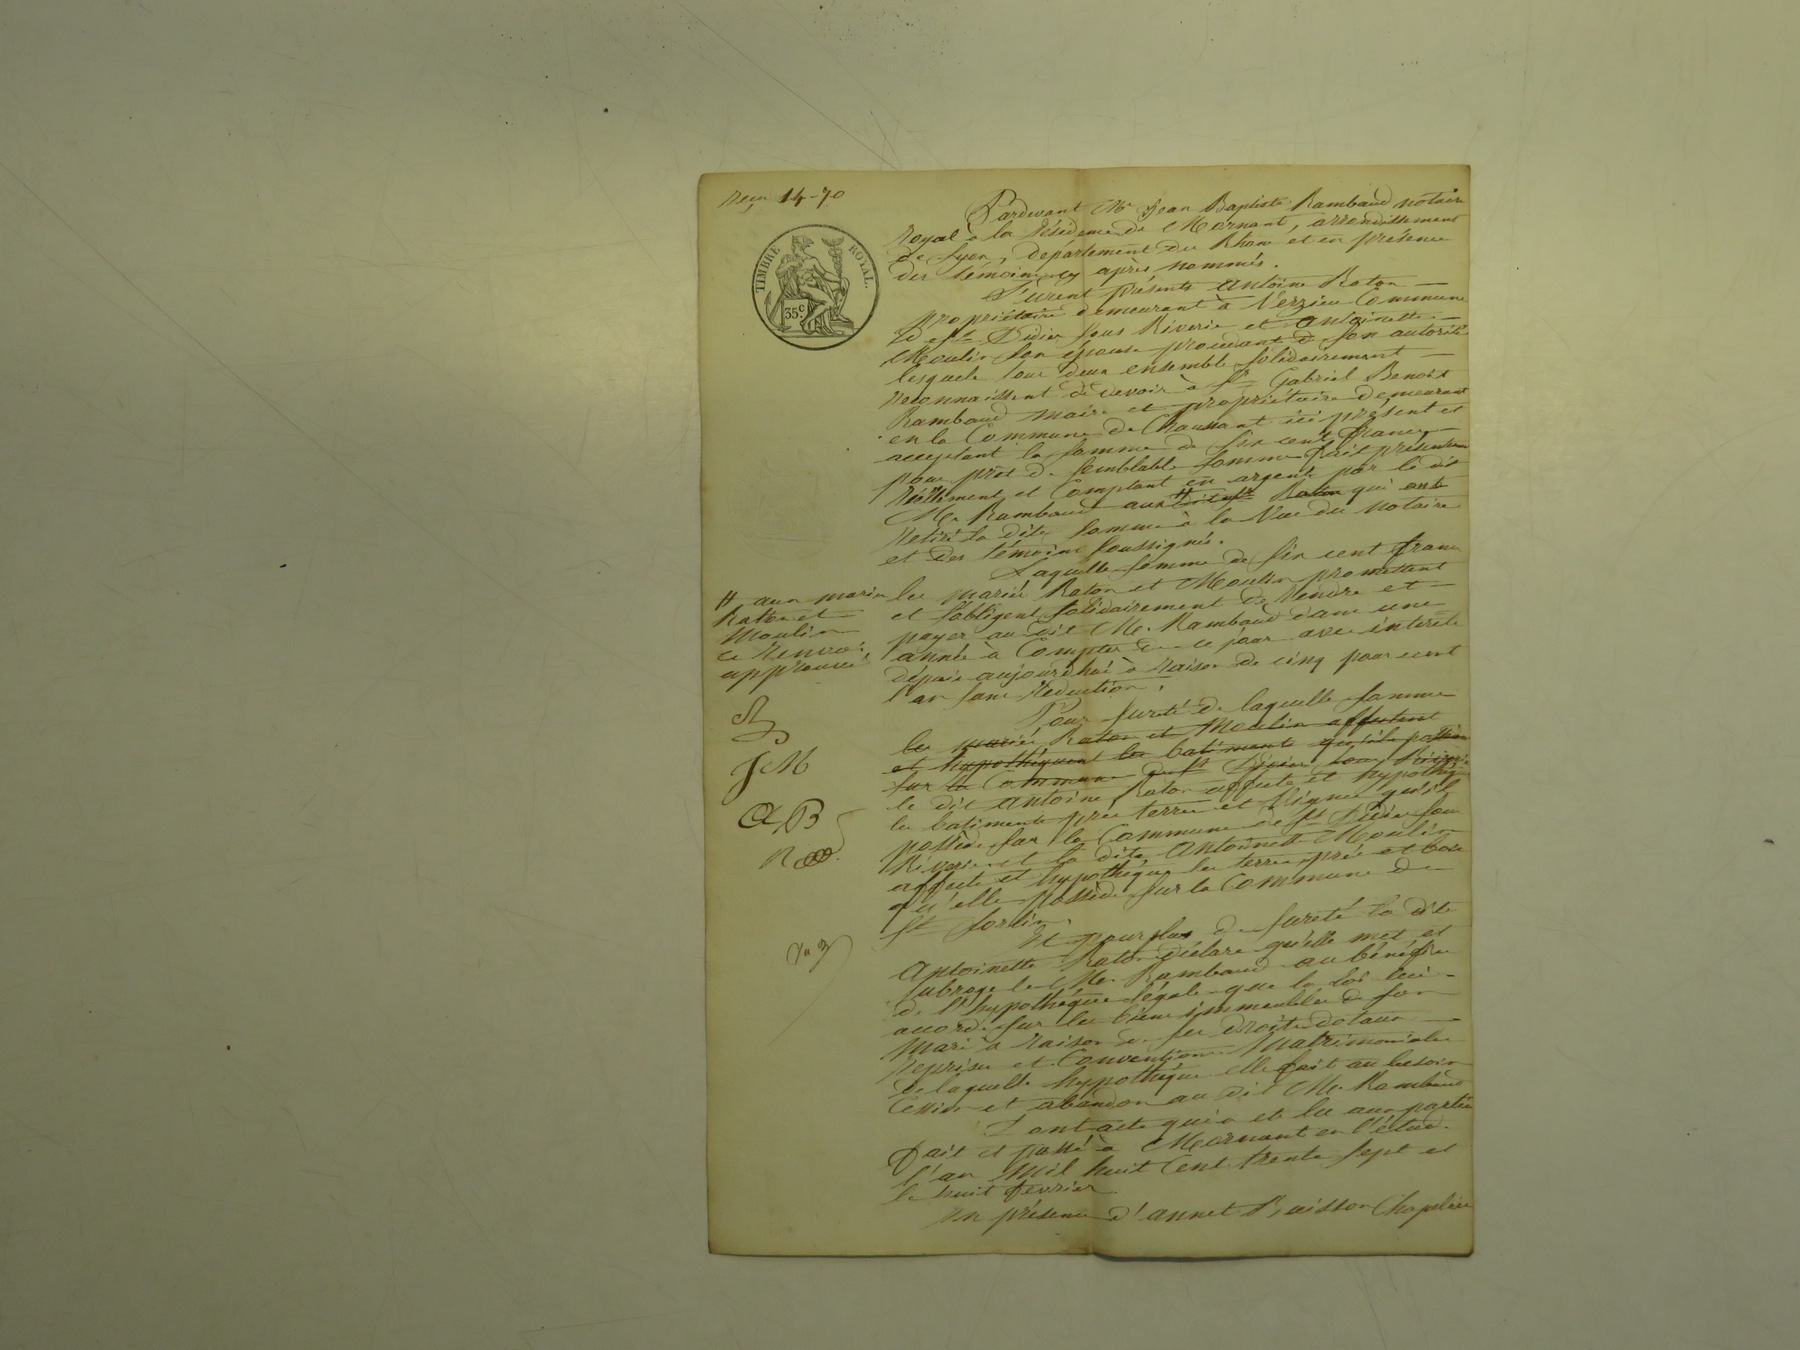 Reçu 14-70
TIMBRE ROYAL.
35c.
Pardevant Me Jean Baptiste Rambaud notaire
Royal à la Résidence de Mornant, arrondissement
de Lyon, département du Rhône et en présence
des témoins cy après nommés.
Furent présents Antoine Raton
propriétaire demeurant à Verzieu Commune
de St Didier sous Riverie et Antoinette
Moulin son épouse procédant de son autorité
lesquels tous deux ensemble solidairement
reconnaissent devoir à Sr Gabriel Benoit
Rambaud maire et propriétaire demeurant
en la Commune de Chaussant ici présent et
acceptant la somme de six cents francs
pour prêt de semblable somme fait présentement
réellement et Comptant en argent par le dit
Mr Rambaud aux # Raton qui ont
retiré la dite somme à la Vue du notaire
et des témoins soussignés.
Laquelle somme de six cent francs
les mariés Raton et Moulin promettent
et s'obligent solidairement de Rendre et
payer au dit Mr Rambaud dans une
année à Compter de ce jour avec intérêts
depuis aujourd'hui à raison de cinq pour cent
l'an sans Réduction.
# aux mariés
Raton et
Moulin
ce Renvoi
approuvé
JM
AB
Pour sureté de laquelle somme
les mariés Raton et Moulin affectent
et hypothéquent les batiments qu'ils possèdent
sur la Commune de St Didier sous Riverie
le dit Antoine Raton affecte et hypothèque
les batiments prés terres et Vignes qu'il
possède sur la Commune de St Didier sous
Riverie et la dite Antoinette Moulin
affecte et hypothèque les terres prés et bois
qu'elle possède sur la Commune de
St Sorlin.
Et pour plus de sureté la dite
Antoinette Raton déclare qu'elle met et
subroge le Mr Rambaud au bénéfice
de l'hypothèque légale que la loi lui
accorde sur les biens immeubles de son
mari à raison de ses droits dotaux
reprises et Conventions Matrimoniales
de laquelle hypothèque elle fait au besoin
Cession et abandon au dit Mr Rambaud
Dont acte qui a été lu aux parties
Fait et passé à Mornant en l'étude.
l'an Mil huit Cent trente sept et
le huit février
En présence d'annet Buisson Chapelier